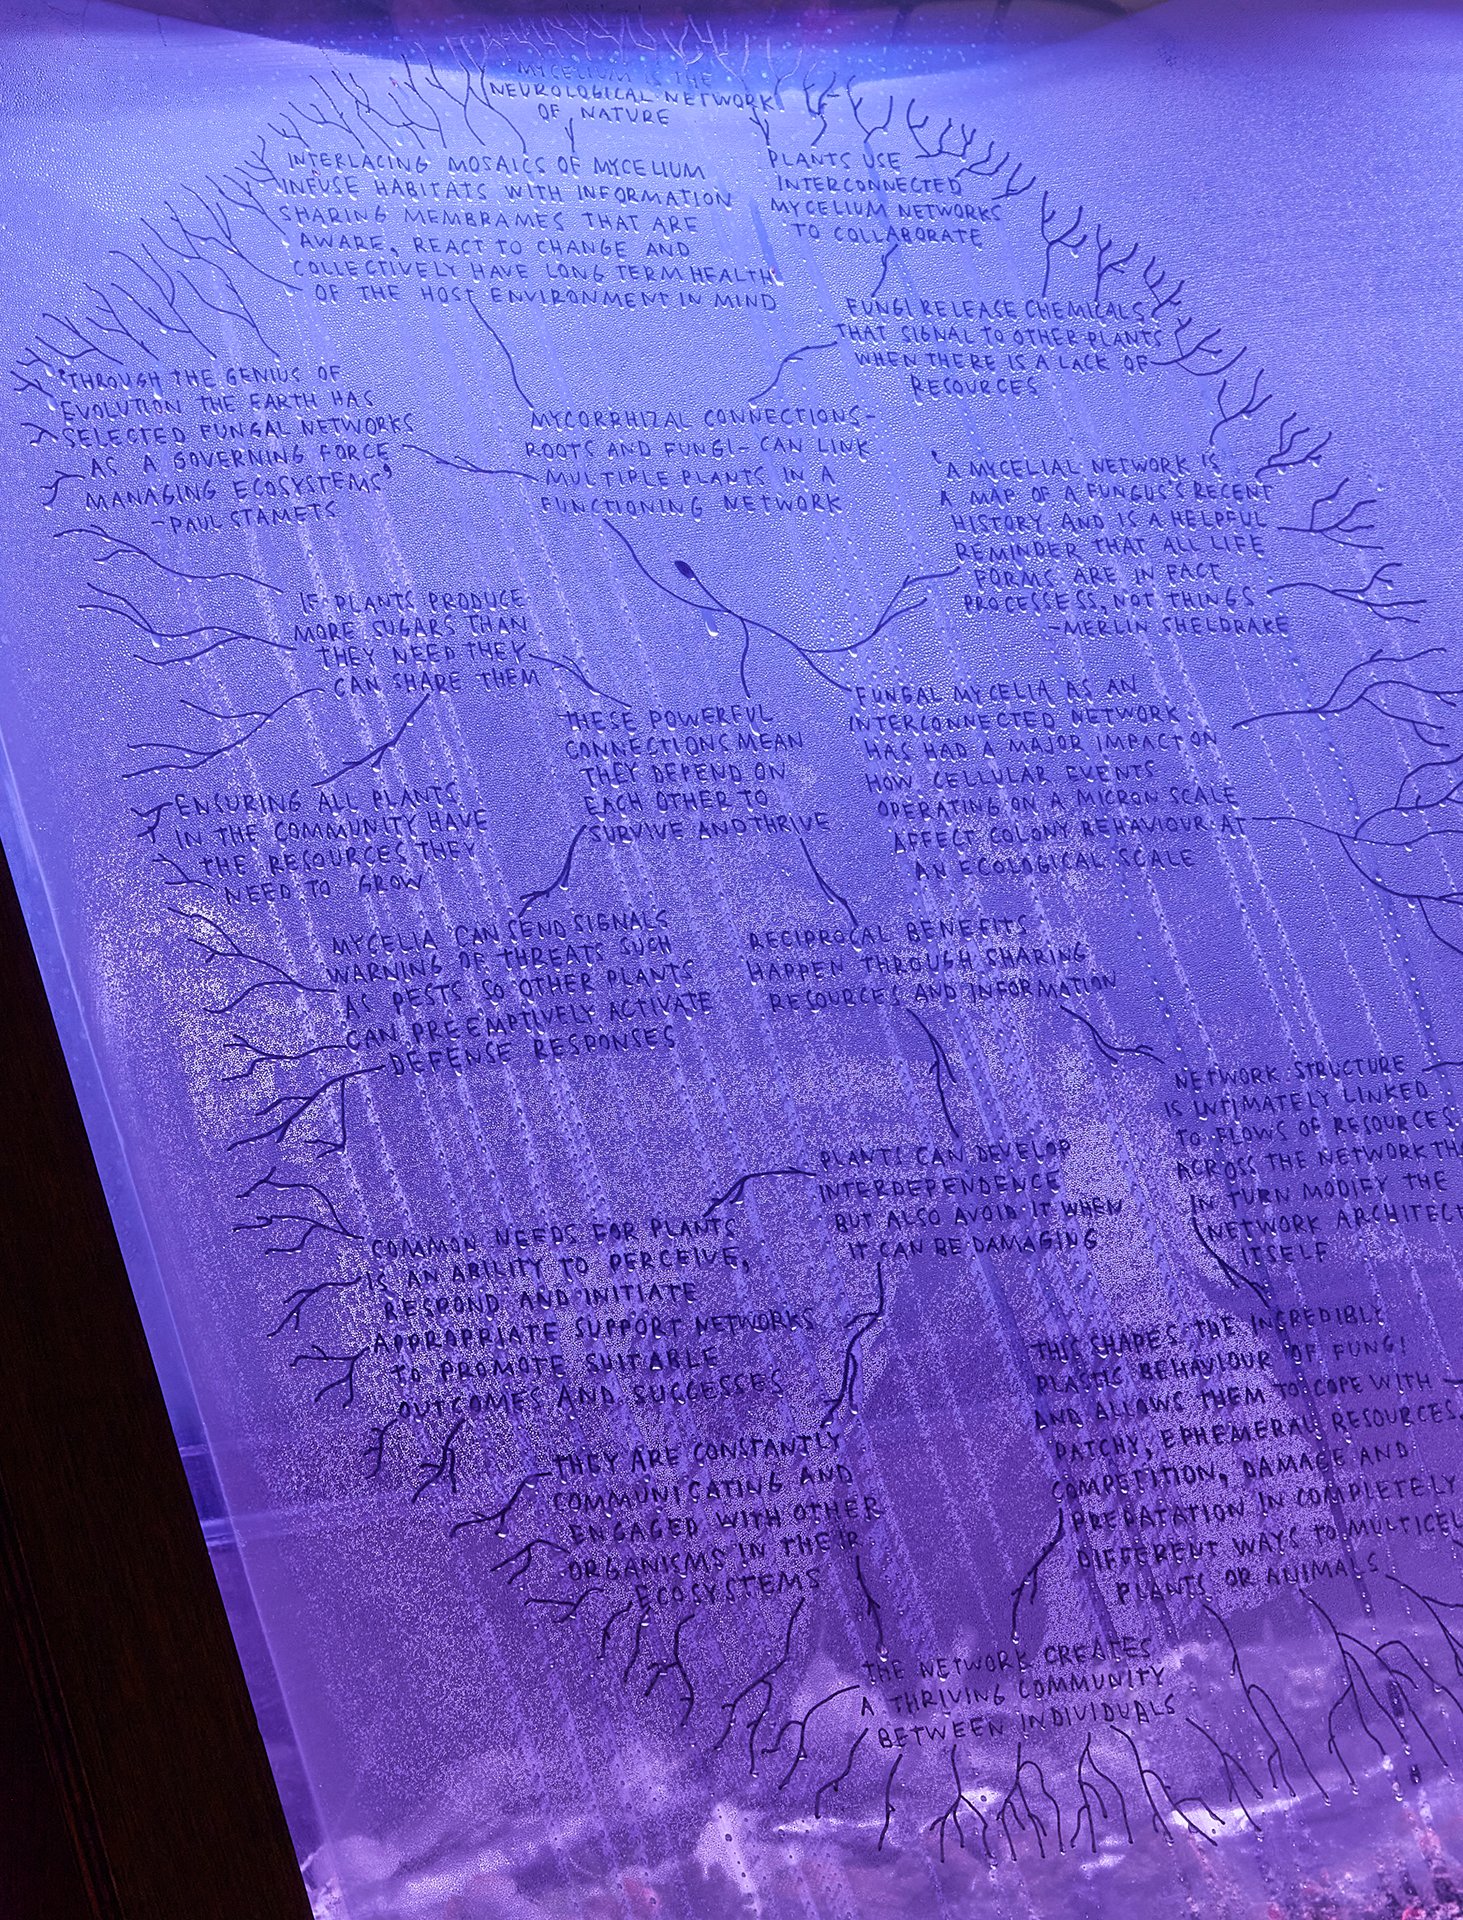 MYCELIUM IS THE
NEUROLOGICAL NETWORK
OF NATURE
INTERLACING MOSAICS OF MYCELIUM
INFUSE HABITATS WITH INFORMATION
SHARING MEMBRAMES THAT ARE
AWARE, REACT TO CHANGE AND
COLLECTIVELY HAVE LONG TERM HEALTH
OF THE HOST ENVIRONMENT IN MIND
PLANTS USE
INTERCONNECTED
MYCELIUM NETWORKS
TO COLLABORATE
FUNGI RELEASE CHEMICALS
THAT SIGNAL TO OTHER PLANTS
WHEN THERE IS A LACK OF
RESOURCES
'THROUGH THE GENIUS OF
EVOLUTION THE EARTH HAS
SELECTED FUNGAL NETWORKS
AS A GOVERNING FORCE
MANAGING ECOSYSTEMS'
-PAUL STAMETS
MYCORRHIZAL CONNECTIONS-
ROOTS AND FUNGI-CAN LINK
MULTIPLE PLANTS IN A
FUNCTIONING NETWORK
'A MYCELIAL NETWORK IS
A MAP OF A FUNGUS'S RECENT
HISTORY AND IS A HELPFUL
REMINDER THAT ALL LIFE
FORMS ARE IN FACT
PROCESSESS, NOT THINGS
-MERLIN SHELDRAKE
IF PLANTS PRODUCE
MORE SUGARS THAN
THEY NEED THEY
CAN SHARE THEM
THESE POWERFUL
CONNECTIONS MEAN
THEY DEPEND ON
EACH OTHER TO
SURVIVE AND THRIVE
FUNGAL MYCELIA AS AN
INTERCONNECTED NETWORK
HAS HAD A MAJOR IMPACT ON
HOW CELLULAR EVENTS
OPERATING ON A MICRON SCALE
AFFECT COLONY BEHAVIOUR AT
AN ECOLOGICAL SCALE
ENSURING ALL PLANTS
IN THE COMMUNITY HAVE
THE RESOURCES THEY
NEED TO GROW
MYCELIA CAN SEND SIGNALS
WARNING OF THREATS SUCH
AS PESTS SO OTHER PLANTS
CAN PREEMPTIVELY ACTIVATE
DEFENSE RESPONSES
RECIPROCAL BENEFITS
HAPPEN THROUGH SHARING
RESOURCES AND INFORMATION
NETWORK STRUCTURE
IS INTIMATELY LINKED
TO FLOWS OF RESOURCES
ACROSS THE NETWORK TH
IN TURN MODIFY THE
NETWORK ARCHITECT
ITSELF
PLANTS CAN DEVELOP
INTERDEPENDENCE
BUT ALSO AVOID IT WHEN
IT CAN BE DAMAGING
COMMON NEEDS FOR PLANTS
IS AN ABILITY TO PERCEIVE,
RESPOND AND INITIATE
APPROPRIATE SUPPORT NETWORKS
TO PROMOTE SUITABLE
OUTCOMES AND SUCCESSES
THIS SHAPES THE INCREDIBLY
PLASTIC BEHAVIOUR OF FUNGI
AND ALLOWS THEM TO COPE WITH
PATCHY, EPHEMERAL RESOURCES,
COMPETITION, DAMAGE AND
PREDATATION IN COMPLETELY
DIFFERENT WAYS TO MULTICEL
PLANTS OR ANIMALS
THEY ARE CONSTANTLY
COMMUNICATING AND
ENGAGED WITH OTHER
ORGANISMS IN THEIR
ECOSYSTEMS
THE NETWORK CREATES
A THRIVING COMMUNITY
BETWEEN INDIVIDUALS